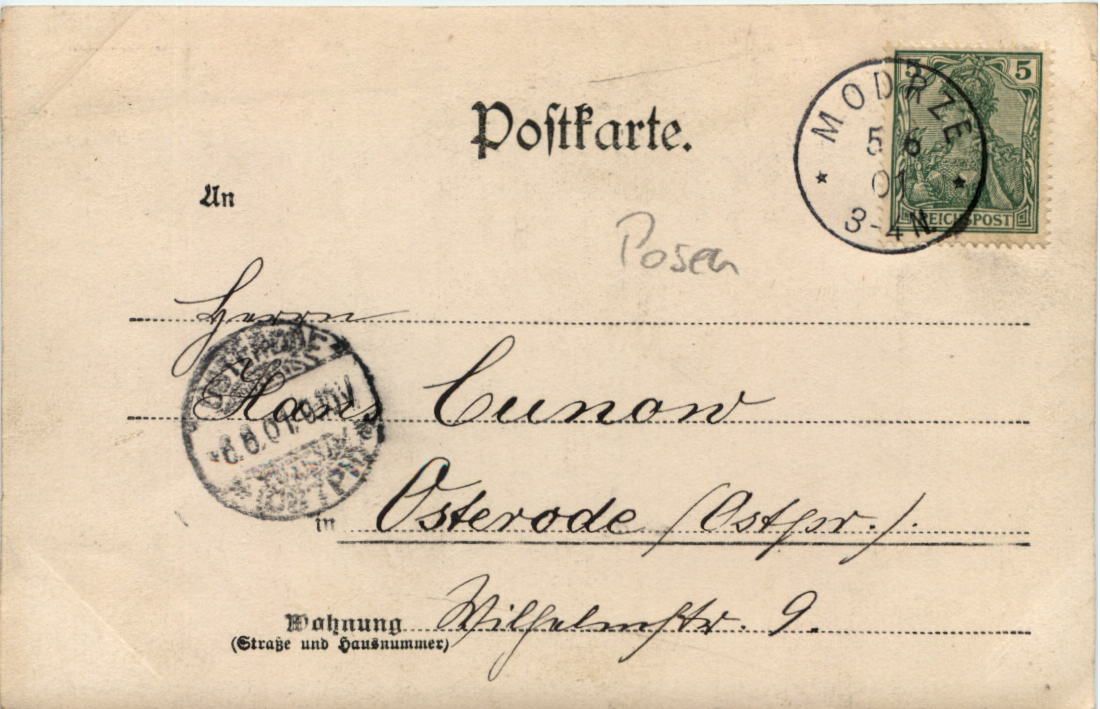 Postkarte.
5 5
REICHSPOST
MODRZE
5 6
01
3-4N
An
Posen
Herrn
OSTERODE
6.6.01.9-10V
(OSTPR.)
Hans Cunow
in Osterode (Ostpr.).
Wohnung Wilhelmstr. 9.
(Straße und Hausnummer)